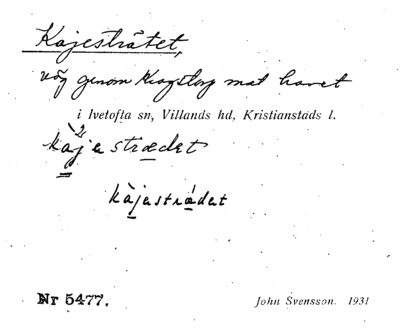 Kajesträtet,
väg genom Krogstorp mot havet
i Ivetofta sn, Villands hd, Kristianstads l.
kàjestrædet
kàjestrádet
Nr 5477. John Svensson. 1931